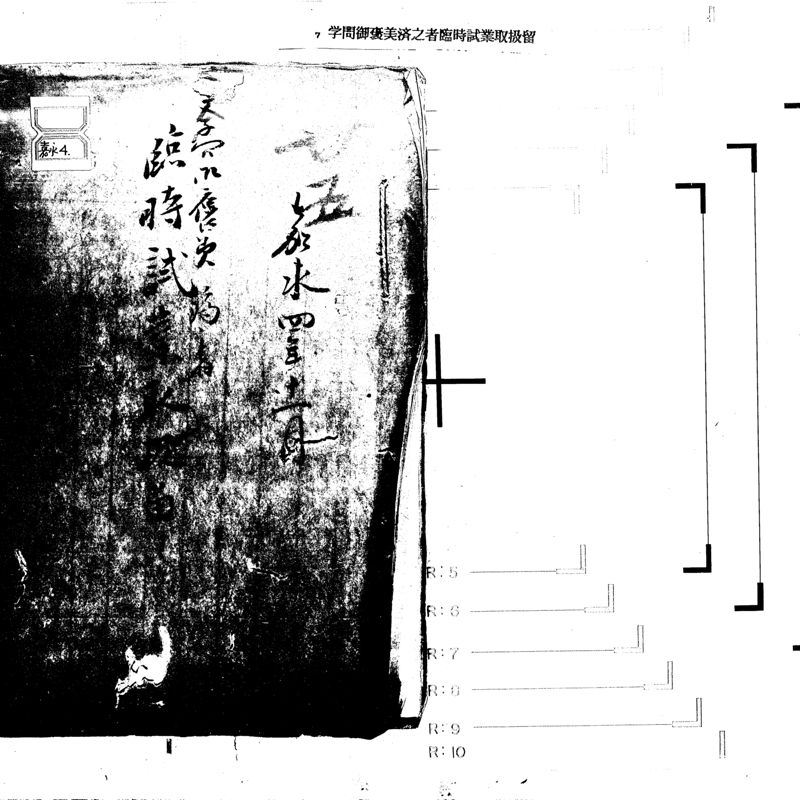 7 学問御褒美済之者臨時試業取扱留
嘉永4.
嘉永四亥年十一月
學問御褒美済之者
臨時試業取扱留
R:5
R:6
R:7
R:8
R:9
R:10